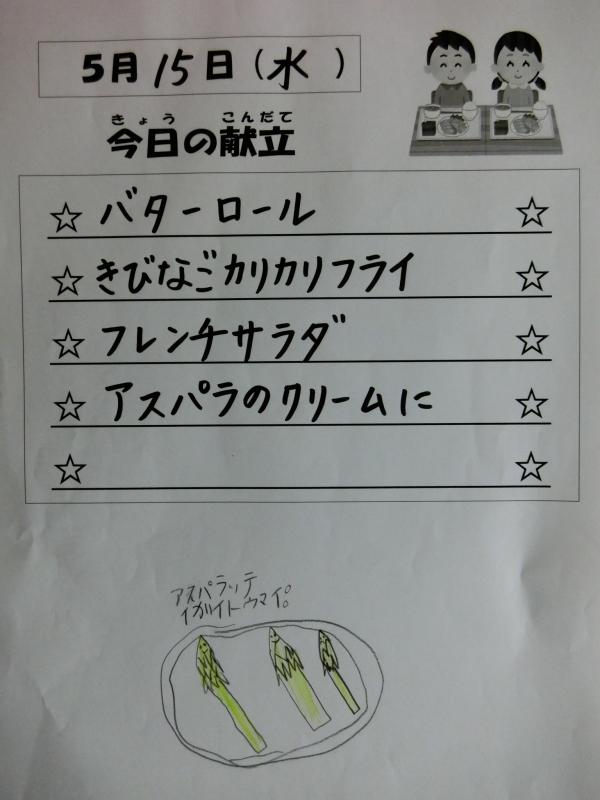 5月15日(水)
きょう こんだて
今日の献立
☆ バターロール ☆
☆ きびなごカリカリフライ ☆
☆ フレンチサラダ ☆
☆ アスパラのクリームに ☆
☆ ☆
アスパラッテ
イガイトウマイ。